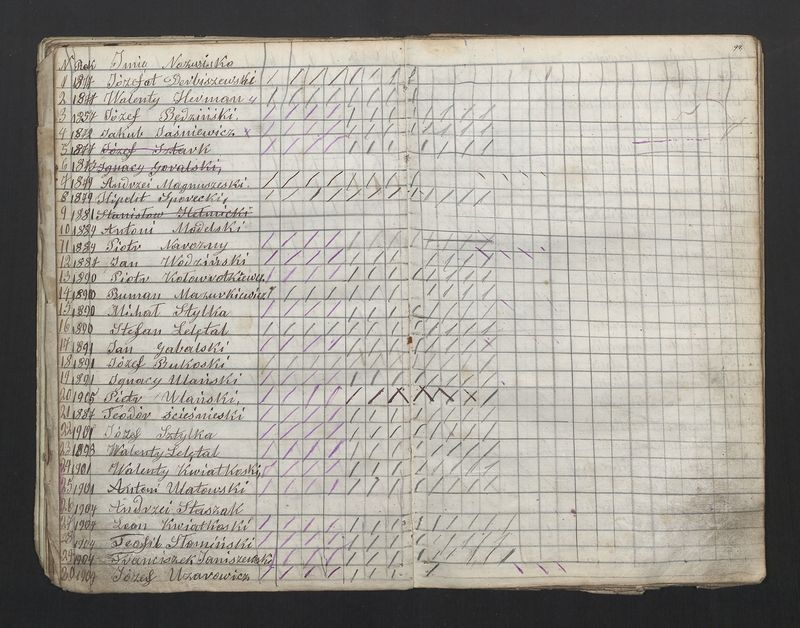 N Rok Imie Nazwisko
1 1877 Józefat Derbiszewski
2 1877 Walenty Herman
3 1857 Józef Będziński
4 1872 Jakub Jaśniewicz
5 1877 Józef Sztark
6 Ignacy Goralski
7 1879 Andrzei Magnuszeski
8 1879 Hipolit Sperecki
9 1881 Stanisław
10 1884 Antoni Modelski
11 1884 Piotr Naroczny
12 1887 Jan Wodziński
13 1890 Piotr Kołowrotkiewicz
14 1890 Ruman Mazurkiewicz
15 1890 Michał Stylka
16 1890 Stefan Lelętal
17 1891 Jan Gabalski
18 1891 Józef Rutkoski
19 1891 Ignacy Ulański
20 1905 Piotr Ulański
21 1887 Teodór Sciesnieski
22 1901 Józef Sztylka
23 1893 Walenty Lelętal
24 1901 Walenty Kwiatkoski
25 1901 Antoni Ulatowski
26 1904 Andrzei Staszak
27 1904 Leon Kwiatkoski
28 1904 Teofil Słomiński
29 1904 Franciszek Janiszewski
30 1909 Józef Uzarowicz